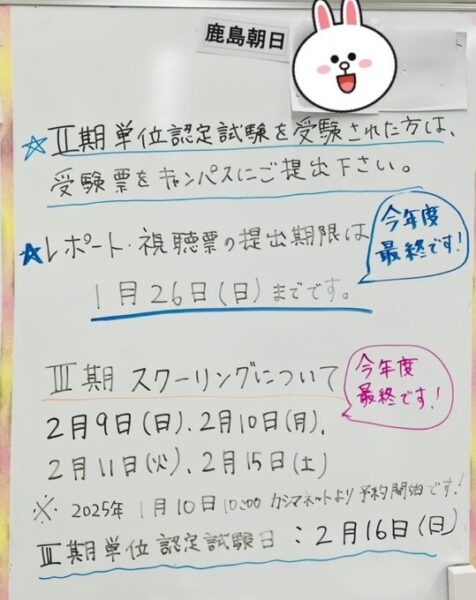 鹿島朝日
☆Ⅱ期単位認定試験を受験された方は、
受験票をキャンパスにご提出下さい。
☆レポート・視聴票の提出期限は
1月26日(日)までです。
今年度
最終です!
Ⅲ期 スクーリングについて
今年度
最終です!
2月9日(日)、2月10日(月)、
2月11日(火)、2月15日(土)
※ 2025年 1月10日 10:00 カシマネットより予約開始です!
Ⅲ期単位認定試験日:2月16日(日)